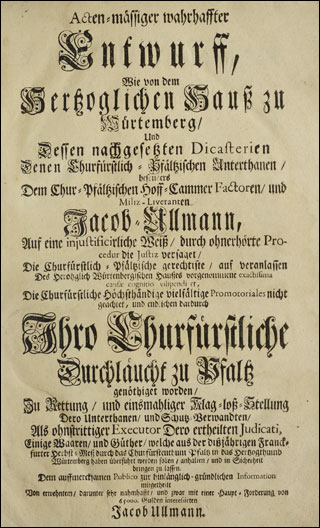 Acten-mässiger wahrhaffter
Entwurff,
Wie von dem
Hertzoglichen Hauß zu
Würtemberg/
Und
Dessen nachgesetzten Dicasterien
Denen Churfürstlich-Pfältzischen Unterthanen/
besonders
Dem Chur-Pfältzischen Hoff-Cammer Factoren/ und
Miliz-Liveranten.
Jacob-Ullmann,
Auf eine injustificirliche Weiß/ durch ohnerhörte Pro-
cedur die Justiz versaget/
Die Churfürstlich-Pfältzische gerechteste/ auf veranlassen
Des Hertzoglich Würtenbergischen Hauses vorgenommene exactissima
causæ cognitio vilipendiret,
Die Churfürstliche Höchsthändige vielfältige Promotoriales nicht
geachtet, und endlichen dardurch
Ihro Churfürstliche
Durchläucht zu Pfaltz
genöthiget worden/
Zu Rettung/ und einsmahliger Klag-loß-Stellung
Dero Unterthanen/ und Schutz-Verwandten/
Als ohnstrittiger Executor Dero ertheilten Judicati,
Einige Waaren/ und Güther/ welche aus der dißjährigen Franck-
furter Herbst-Meß durch das Churfürstenthum Pfaltz in das Hertzogthumb
Würtenberg haben überführt werden sollen/ anhalten/ und in Sicherheit
bringen zu lassen.
Dem auffmercksamen Publico zur hinlänglich-gründlichen Information
mitgetheilt
Von erwehnten/ darunter sehr nahmhafft/ und zwar mit einer Haupt-Forderung von
Gulden interessirten
Jacob Ullmann.